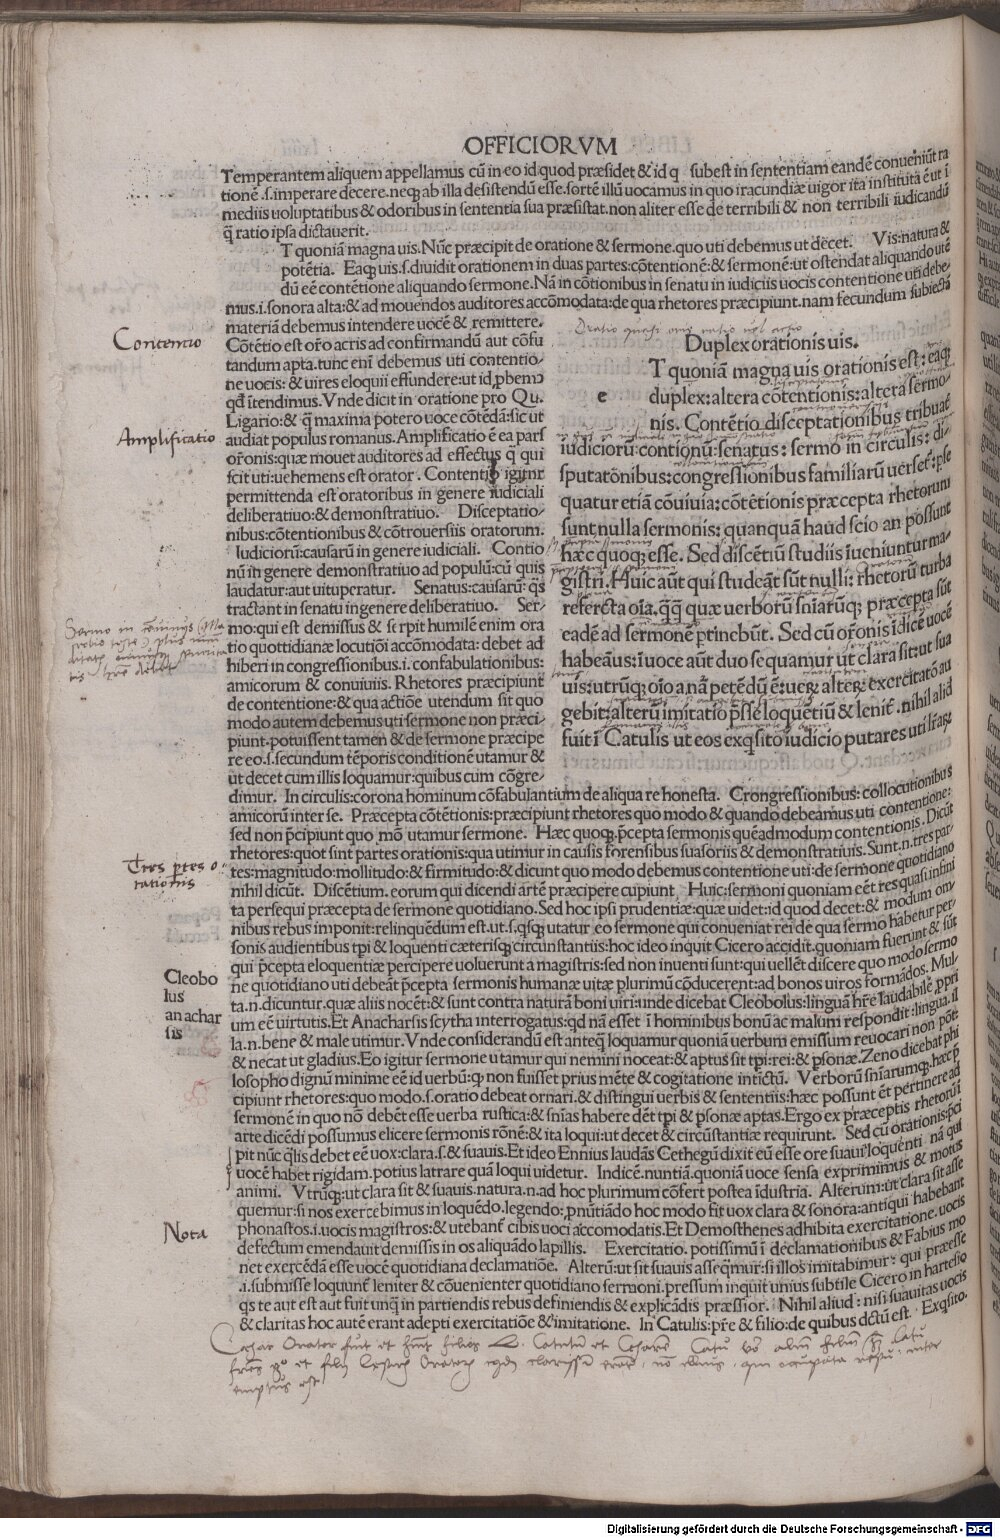 OFFICIORVM
Temperantem aliquem appellamus cū in eo id quod præsidet & id q subest in sententiam eandē conueniūt ra
tionē .s. imperare decere. neq; ab illa desistendū esse. fortē illū uocamus in quo iracundiæ uigor ita institutā ē ut ī
mediis uoluptatibus & odoribus in sententia sua præsistat. non aliter esse de terribili & non terribili iudicandū
q̄ ratio ipsa dictauerit.
T quoniā magna uis. Nūc præcipit de oratione & sermone. quo uti debemus ut decet. Vis: natura &
potētia. Eaq; uis .s. diuidit orationem in duas partes: cōtentionē: & sermonē: ut ostendat aliquando utē
dū eē contētione aliquando sermone. Nā in cōtionibus in senatu in iudiciis uocis contentione uti debe-
mus .i. sonora alta: & ad mouendos auditores accōmodata: de qua rhetores præcipiunt. nam secundum subiectā
materiā debemus intendere uocē & remittere.
Contencio
Cōtētio est or̄o acris ad confirmandū aut cōfu
tandum apta. tunc enī debemus uti contentio-
ne uocis: & uires eloquii effundere: ut id pbemꝰ
qđ ītendimus. Vnde dicit in oratione pro Qu.
Ligario: & q̄ maxima potero uoce cōtēdā: sic ut
Amplificatio
audiat populus romanus. Amplificatio ē ea pars
or̄onis: quæ mouet auditores ad effectus q̄ qui
scit uti: uehemens est orator. Contentio igitur
permittenda est oratoribus in genere iudiciali
deliberatiuo: & demonstratiuo. Disceptatio-
nibus: cōtentionibus & cōtrouersiis oratorum.
Iudiciorū: causarū in genere iudiciali. Contio
nū in genere demonstratiuo ad populū: cū quis
laudatur: aut uituperatur. Senatus: causarū: q̄s
tractant in senatu in genere deliberatiuo. Ser-
mo: qui est demissus & serpit humilē enim ora
tio quottidianæ locutiōi accōmodata: debet ad
hiberi in congressionibus .i. confabulationibus:
amicorum & conuiuiis. Rhetores præcipiunt
de contentione: & qua actiōe utendum sit quo
modo autem debemus uti sermone non præci-
piunt. potuissent tamen & de sermone præcipe
re eo .s. secundum tēporis conditionē utamur &
ut decet cum illis loquamur: quibus cum cōgre-
Duplex orationis uis.
T quoniā magna uis orationis est: eaq;
e
duplex: altera cōtentionis: altera sermo-
nis. Contētio disceptationibus tribuat̄
iudiciorū: contionū: senatus: sermo in circulis: di-
sputationibus: congressionibus familiarū uerset̄: p̄se
quatur etiā cōuiuia: cōtētionis præcepta rhetorum
sunt: nulla sermonis: quanquā haud scio an possunt
hæc quoq; esse. Sed discētiū studiis īueniuntur ma-
gistri. Huic aūt qui studeāt sūt nulli: rhetorū turba
referēta oīa. q̄q̄ quæ uerborū sn̄iarūq; præcepta sūt
eadē ad sermonē ptinebūt. Sed cū or̄onis īdicē uocē
habeāus: ī uoce aūt duo sequamur ut clara sit: ut sua
uis: utrūq; oīo a nā petēdū ē: ueꝝ alteꝝ exercitatō au
gebit: alterū imitatio p̄sse loquētiū & lenit̄. nihil aliđ
fuit ī Catulis ut eos exq̄sito iudicio putares uti lr̄aꝝ:
dimur. In circulis: corona hominum cōfabulantium de aliqua re honesta. Crongressionibus: collocutionibus
amicorū inter se. Præcepta cōtētionis: præcipiunt rhetores quo modo & quando debeamus uti contentione:
sed non p̄cipiunt quo mō utamur sermone. Hæc quoq; p̄cepta sermonis quēadmodum contentionis. Dicūt
rhetores: quot sint partes orationis: qua utimur in causis forensibus suasoriis & demonstratiuis. Sunt .n. tres par-
Tres p̄tes o-
rationis
tes: magnitudo: mollitudo: & firmitudo: & dicunt quo modo debemus contentione uti: de sermone quotidiano
nihil dicūt. Discētium. eorum qui dicendi artē præcipere cupiunt. Huic: sermoni quoniam eēt res quasi infini
ta persequi præcepta de sermone quotidiano. Sed hoc ipsi prudentiæ: quæ uidet: id quod decet: & modum om-
nibus rebus imponit: relinquēdum est. ut .s. q̄sq; utatur eo sermone qui conueniat rei de qua sermo habetur per-
sonis audientibus tpi & loquenti cæterisq; circunstantiis: hoc ideo inquit Cicero accidit. quoniam fuerunt & sūt
qui p̄cepta eloquentiæ percipere uoluerunt a magistris: sed non inuenti sunt: qui uellēt discere quo modo sermo
Cleobo
lus
anachar
sis
ne quotidiano uti debeāt p̄cepta sermonis humanæ uitæ plurimū cōducerent: ad bonos uiros formādos. Mul
ta .n. dicuntur. quæ aliis nocēt: & sunt contra naturā boni uiri: unde dicebat Cleobolus: linguā hr̄e laudabilē ppri
um eē uirtutis. Et Anacharsis scytha interrogatus: qđ nā esset ī hominibus bonū ac malum respondit: lingua. il
la .n. bene & male utimur. Vnde considerandū est anteq̄ loquamur quoniā uerbum emissum reuocari non pōt:
& necat ut gladius. Eo igitur sermone utamur qui nemini noceat: & aptus sit tpi: rei: & psonæ. Zeno dicebat phi
losopho dignū minime eē id uerbū: qđ non fuisset prius mēte & cogitatione intictū. Verborū sn̄iarumq;. hæc p̄
cipiunt rhetores: quo modo .s. oratio debeat ornari. & distingui uerbis & sententiis: hæc possunt ēt pertinere ad
sermonē in quo nō debēt esse uerba rustica: & sn̄ias habere dēt tpi & psonæ aptas. Ergo ex præceptis rhetorū ī
arte dicēdi possumus elicere sermonis rōnē: & ita loqui: ut decet & circūstantiæ requirunt. Sed cū orationis: p̄ci
pit nūc q̄lis debet eē uox: clara .s. & suauis. Et ideo Ennius laudās Cethegū dixit eū esse ore suaui loquenti nā qui
uocē habet rigidam. potius latrare quā loqui uidetur. Indicē. nuntiā. quoniā uoce sensa exprimimus & motus
animi. Vtrūq;: ut clara sit & suauis. natura .n. ad hoc plurimum cōfert postea īdustria. Alterum: ut clara sit asse
quemur: si nos exercebimus in loquēdo. legendo: pnūtiādo hoc modo fit uox clara & sonora: antiqui habebant
Nota
phonastos .i. uocis magistros: & utebant̄ cibis uoci accomodatis. Et Demosthenes adhibita exercitatione. uocis
defectum emendauit demissis in os aliquādo lapillis. Exercitatio. potissimū ī declamationibus & Fabius mo
net exercēdā esse uocē quotidiana declamatiōe. Alterū: ut sit suauis asseq̄mur: si illos imitabimur: qui præsse
.i. submisse loquunt̄ leniter & cōuenienter quotidiano sermoni. pressum inquit unius subtile Cicero in hartesio
q̄s te aut est aut fuit unq̄ in partiendis rebus definiendis & explicādis præssior. Nihil aliud: nisi suauitas uocis
& claritas hoc autē erant adepti exercitatiōe & imitatione. In Catulis: pr̄e & filio: de quibus dc̄tū est. Exq̄sito.
Digitalisierung gefördert durch die Deutsche Forschungsgemeinschaft - DFG